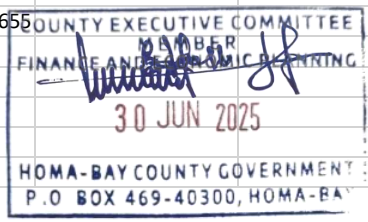 655
COUNTY EXECUTIVE COMMITTEE
MEMBER
FINANCE AND ECONOMIC PLANNING
30 JUN 2025
HOMA-BAY COUNTY GOVERNMENT
P.O BOX 469-40300, HOMA-BAY